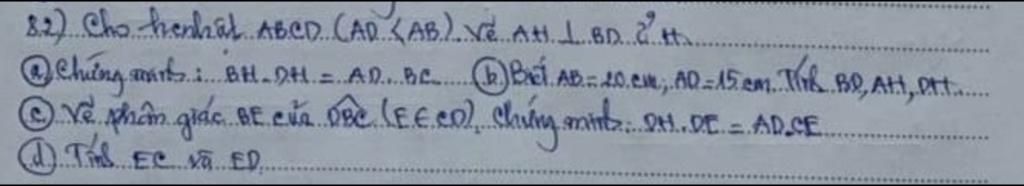 8.2) Cho hcnhật ABCD (AD < AB). Vẽ AH ⊥ BD ở H.
ⓐ Chứng minh: BH.DH = AD.BC ⓑ Biết AB = 20 cm; AD = 15 cm. Tính BD, AH, DH.
ⓒ Vẽ phân giác BE của DBC (E ∈ CD). Chứng minh: DH.DE = AD.CE
ⓓ Tính EC và ED.